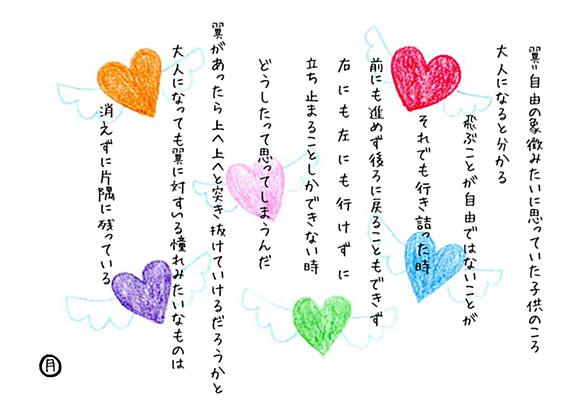 翼=自由の象徴みたいに思っていた子供のころ
大人になると分かる
飛ぶことが自由ではないことが
それでも行き詰った時
前にも進めず後ろに戻ることもできず
右にも左にも行けずに
立ち止まることしかできない時
どうしたって思ってしまうんだ
翼があったら上へ上へと突き抜けていけるだろうかと
大人になっても翼に対すいる憧れみたいなものは
消えずに片隅に残っている
月